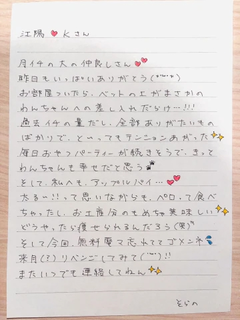 江陽 Kさん
月イチの大の仲良しさん
昨日もいっぱいありがとう
お部屋ついたら、ベットの上がまさかの
わんちゃんへの差し入れだらけ…!!!
過去イチの量だし、全部ありがたいもの
ばかりで、とってもテンションあがった
毎日おやつパーティーが続きそうで、きっと
わんちゃんも幸せだと思う
そして、私へも、アップルパイ…
太る…!!って思いながらも、ペロッて食べ
ちゃったし、お土産分のもめちゃ美味しい
どうやったら痩せられるんだろう(笑)
そして今回、無料券マ忘れててゴメンネ
来月(?)リベンジしてみて
またいつでも連絡してねん